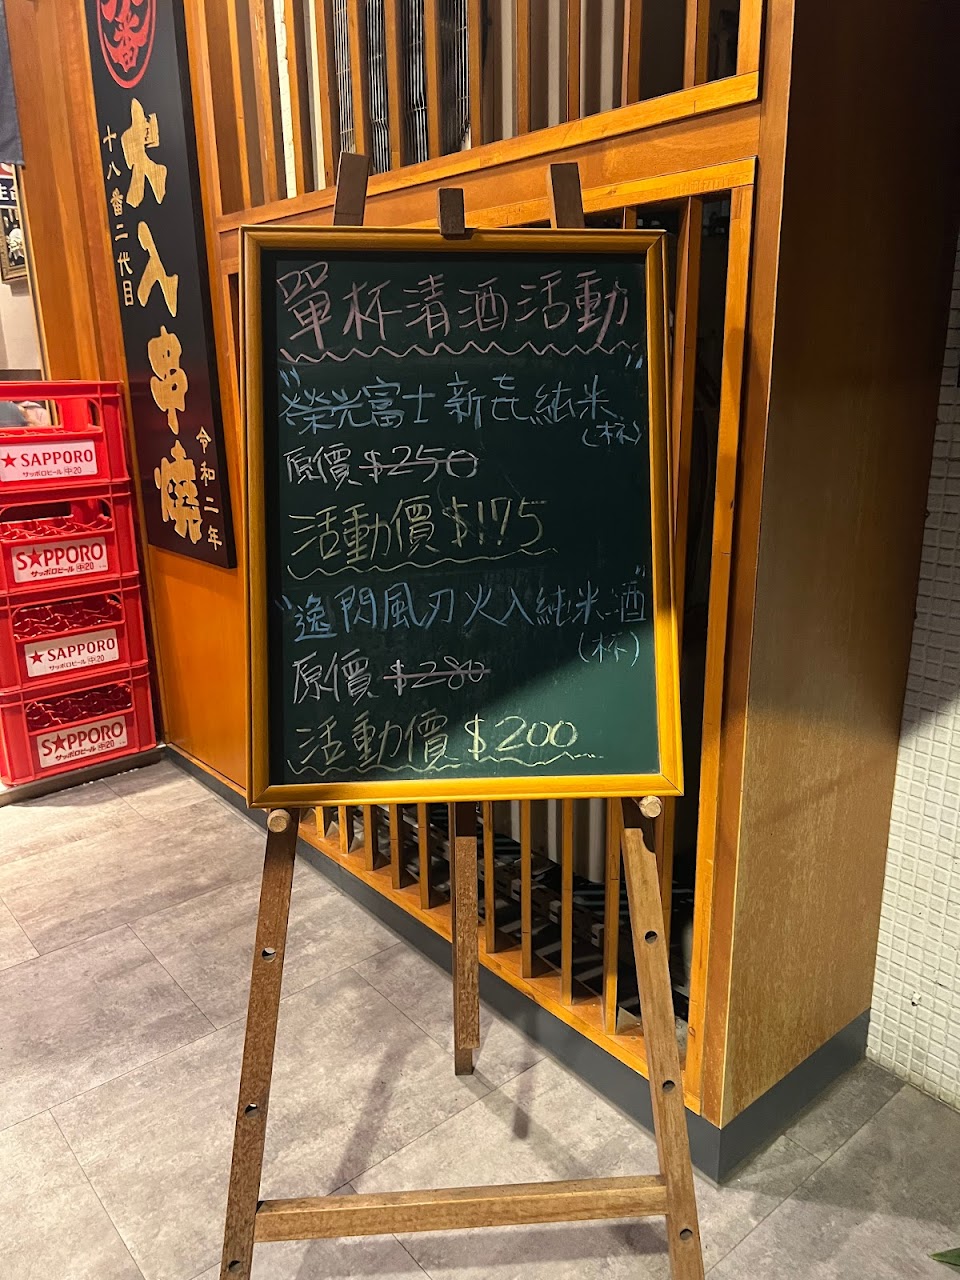 大入串燒
十八番二代目
令和二年
單杯清酒活動
"榮光富士 新㐂純米"
(杯)
原價 $250
活動價 $175
"逸 閃風刃火入純米酒"
(杯)
原價 $280
活動價 $200
★ SAPPORO
サッポロビール 中20
S★PPORO
サッポロビール 中20
★ SAPPORO
サッポロビール 中20
S★PPORO
サッポロビール 中20